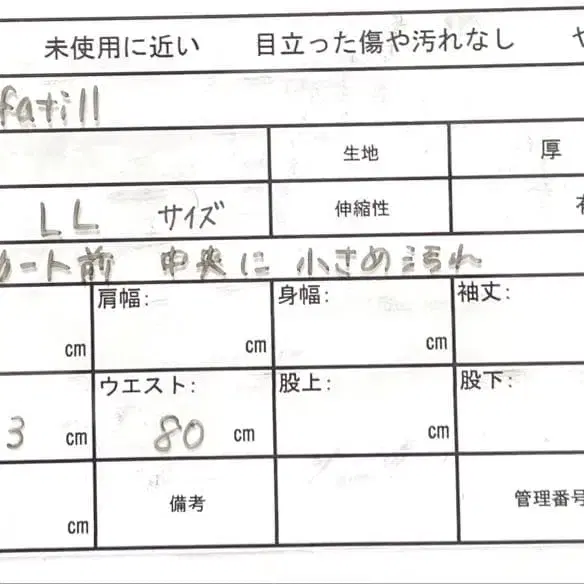 未使用に近い 目立った傷や汚れなし
fatill
生地 厚
LL サイズ 伸縮性
ート前 中央に 小さめ汚れ
肩幅: 身幅: 袖丈:
cm cm cm
ウエスト: 股上: 股下:
3 cm 80 cm cm
備考 管理番号
cm